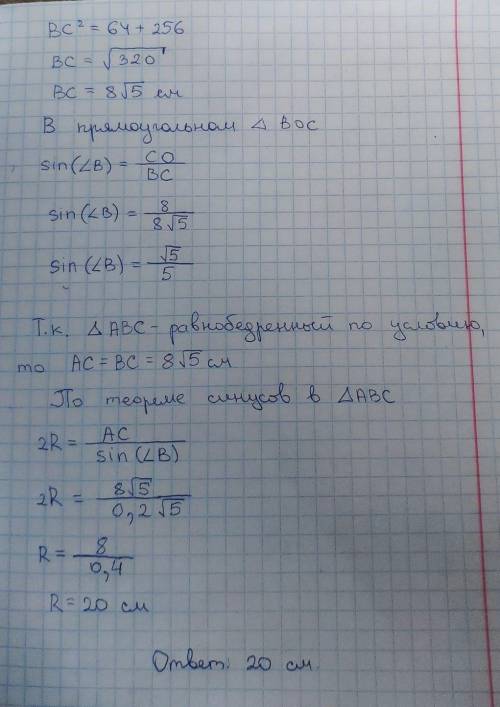 BC² = 64 + 256
BC = √320
BC = 8√5 см
В прямоугольном △ BOC
sin(∠B) = CO/BC
sin(∠B) = 8/8√5
sin(∠B) = √5/5
Т.к. △ABC - равнобедренный по условию,
то AC = BC = 8√5 см
По теореме синусов в △ABC
2R = AC/sin(∠B)
2R = 8√5/0,2√5
R = 8/0,4
R = 20 см
Ответ: 20 см